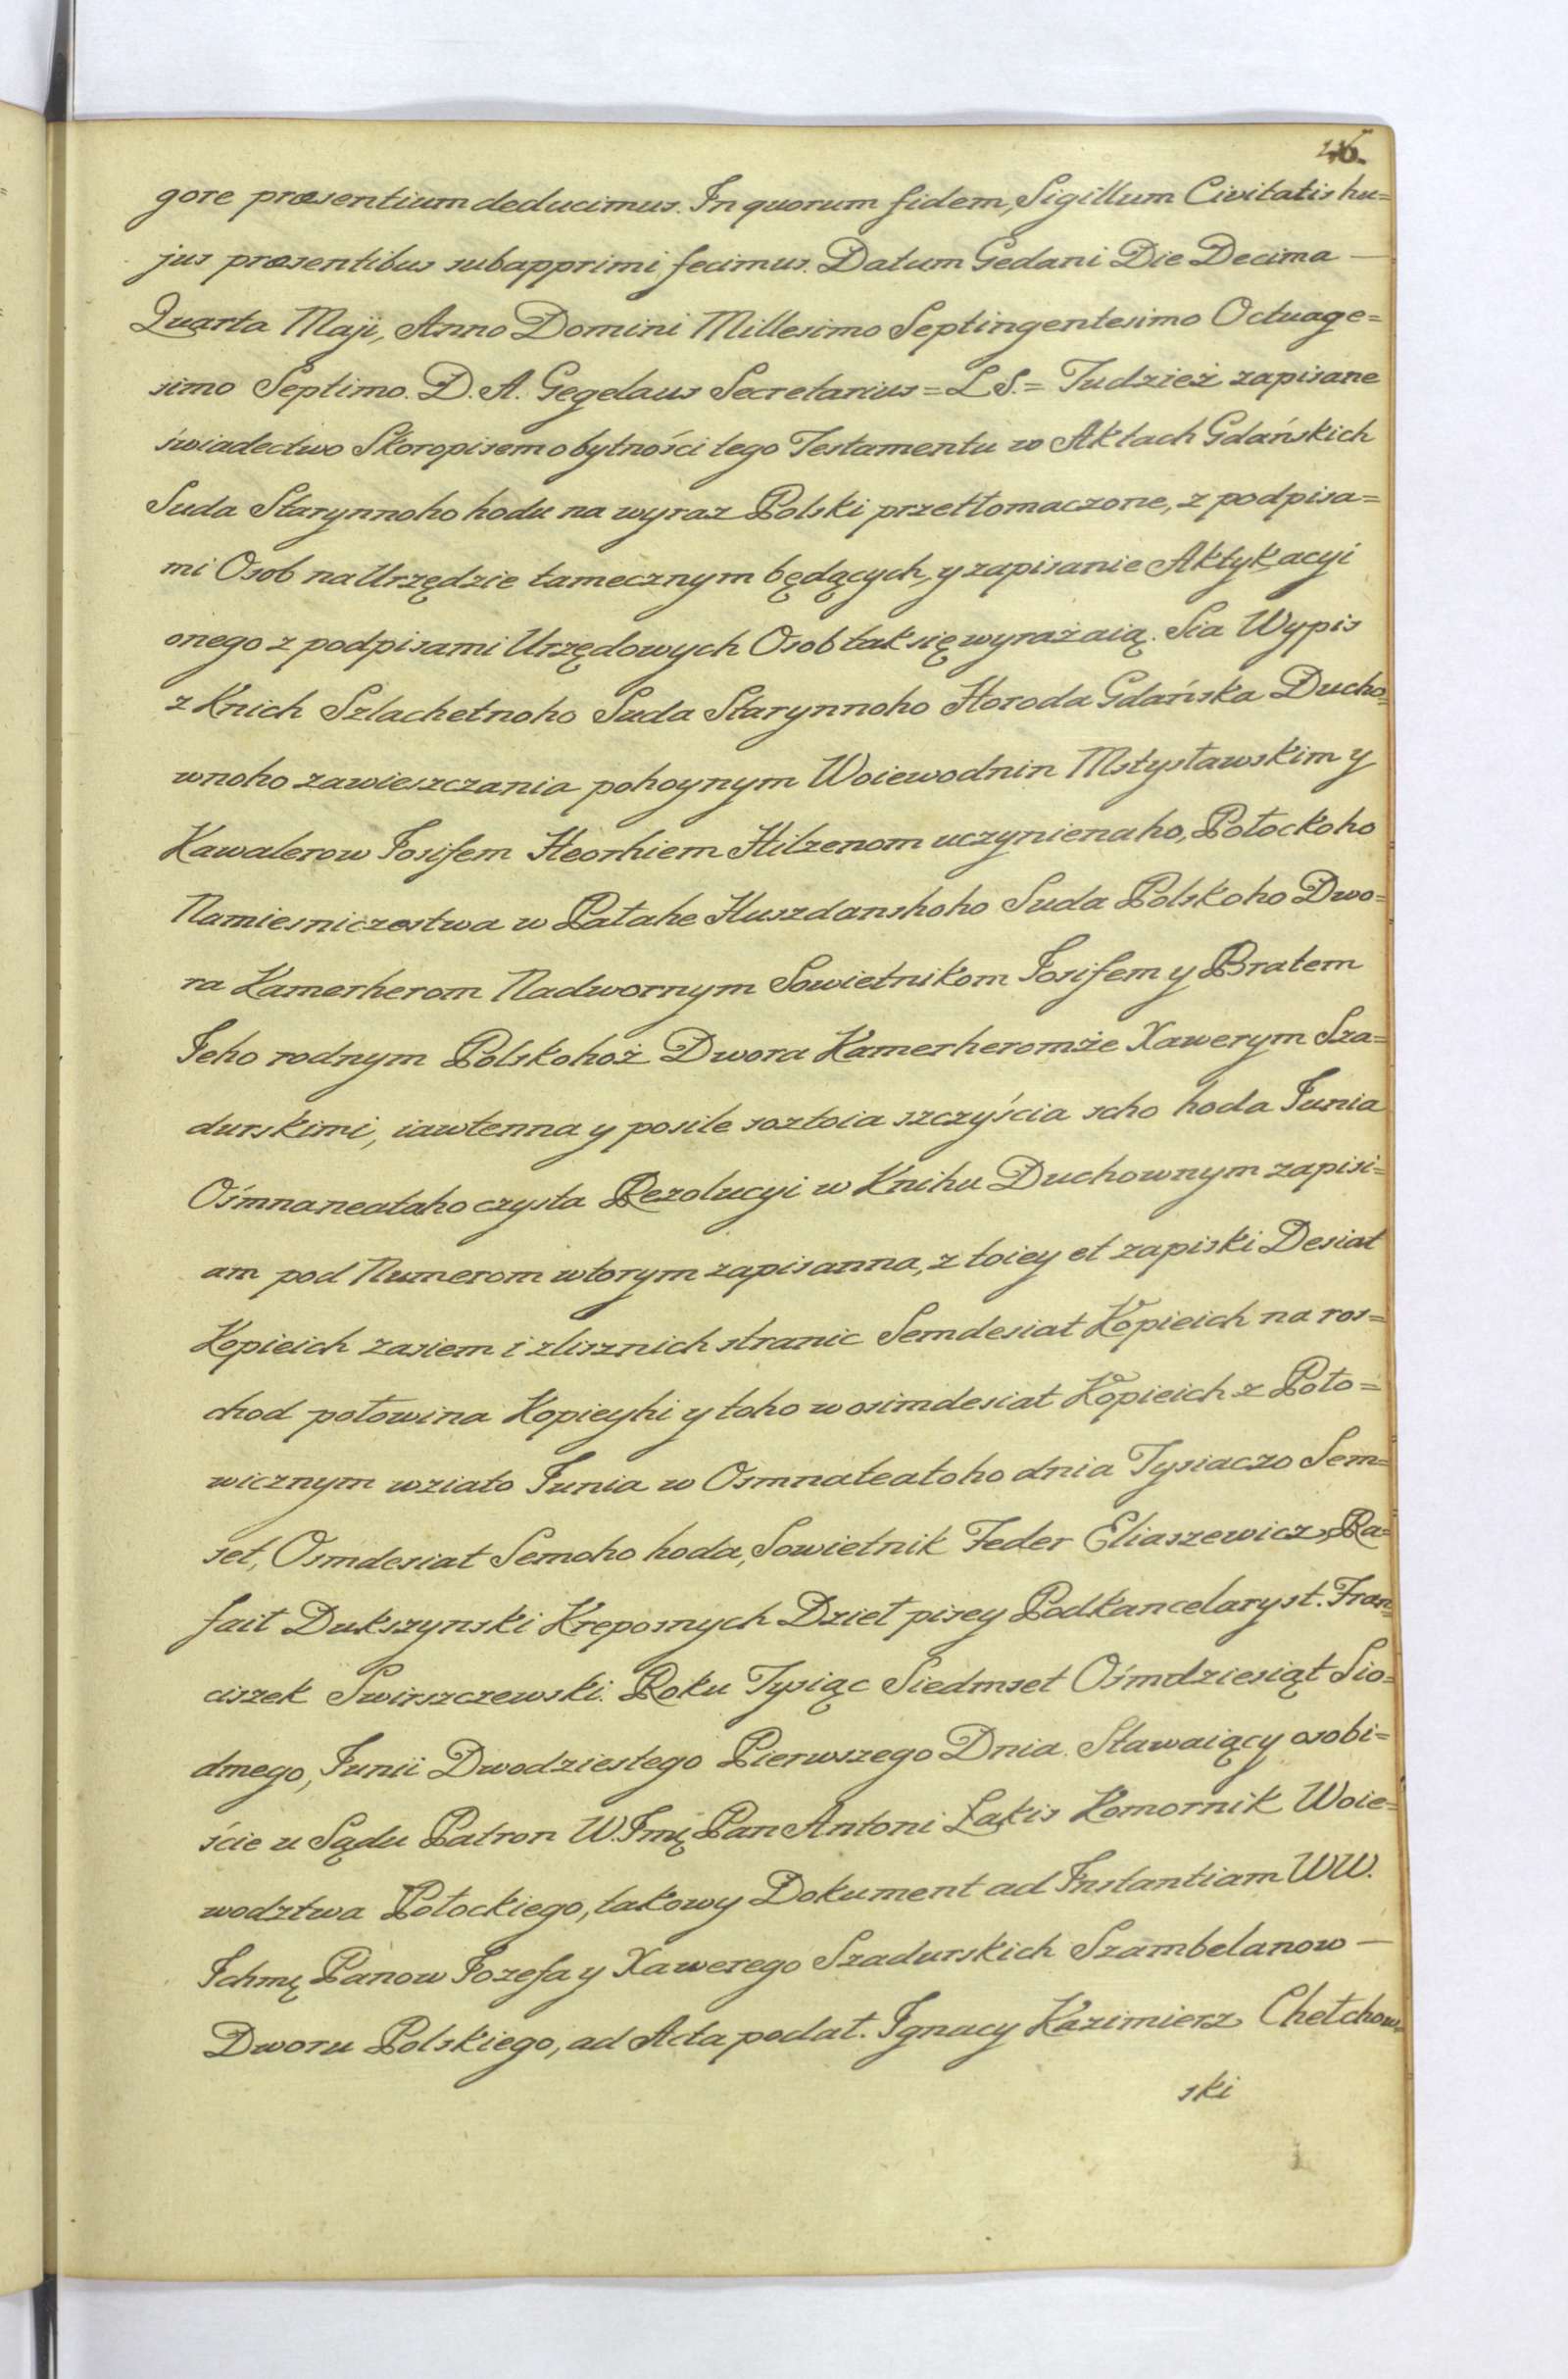 gore præsentium deducimus. In quorum fidem, Sigillum Civitatis hu=
jus præsentibus subapprimi fecimus. Datum Gedani Die Decima —
Quarta Maji, Anno Domini Millesimo Septingentesimo Octuage=
simo Septimo. D. A. Gegelaus Secretarius = L S. = Tudzież zapisane
świadectwo Skoropisem o bytności tego Testamentu w Aktach Gdańskich
Suda Starynnoho hodu na wyraz Polski przetłomaczone, z podpisa=
mi Osob na Urzędzie tamecznym będących, y zapisanie Aktykacyi
onego z podpisami Urzędowych Osob tak się wyrażaią. Sia Wypis
z Knich Szlachetnoho Suda Starynnoho Horoda Gdańska Ducho=
wnoho zawieszczania pohoynym Woiewodnin Mstysławskim y
Kawalerow Iosifem Heorhiem Hilzenom uczynienaho, Połockoho
Namiesniczestwa w Patahe Huszdanshoho Suda Polskoho Dwo=
ra Kamerherom Nadwornym Sowietnikom Iosifem y Bratem
Jeho rodnym Polskohoż Dwora Kamerheromże Xawerym Sza=
durskimi, iawtenna y posile soztoia szczyścia scho hoda Junia
Ośmnaneataho czysta Rezolucyi w Knihu Duchownym zapisi=
am pod Numerom wtorym zapisanna, z toiey et zapiski Desiat
Kopieich zasiem i zlisznich stranic Semdesiat Kopieich na ros=
chod połowina Kopieyhi y toho w osimdesiat Kopieich z Poto=
wicznym wziato Junia w Osmnateatoho dnia Tysiaczo Sem=
set, Osmdesiat Semoho hoda, Sowietnik Feder Eliaszewicz, Ra=
fait Dukszynski Kreposnych Dzieł pisey Podkancelaryst. Fran=
ciszek Swirszczewski. Roku Tysiąc Siedmset Ośmdziesiąt Sio=
dmego, Junii Dwodziestego Pierwszego Dnia. Stawaiący osobi=
ście u Sądu Patron W. Imę Pan Antoni Łakis Komornik Woie=
wodztwa Połockiego, takowy Dokument ad Instantiam WW.
Ichmę Panow Iozefa y Xawerego Szadurskich Szambelanow —
Dworu Polskiego, ad Acta podał. Ignacy Kazimierz Chełchow=
ski